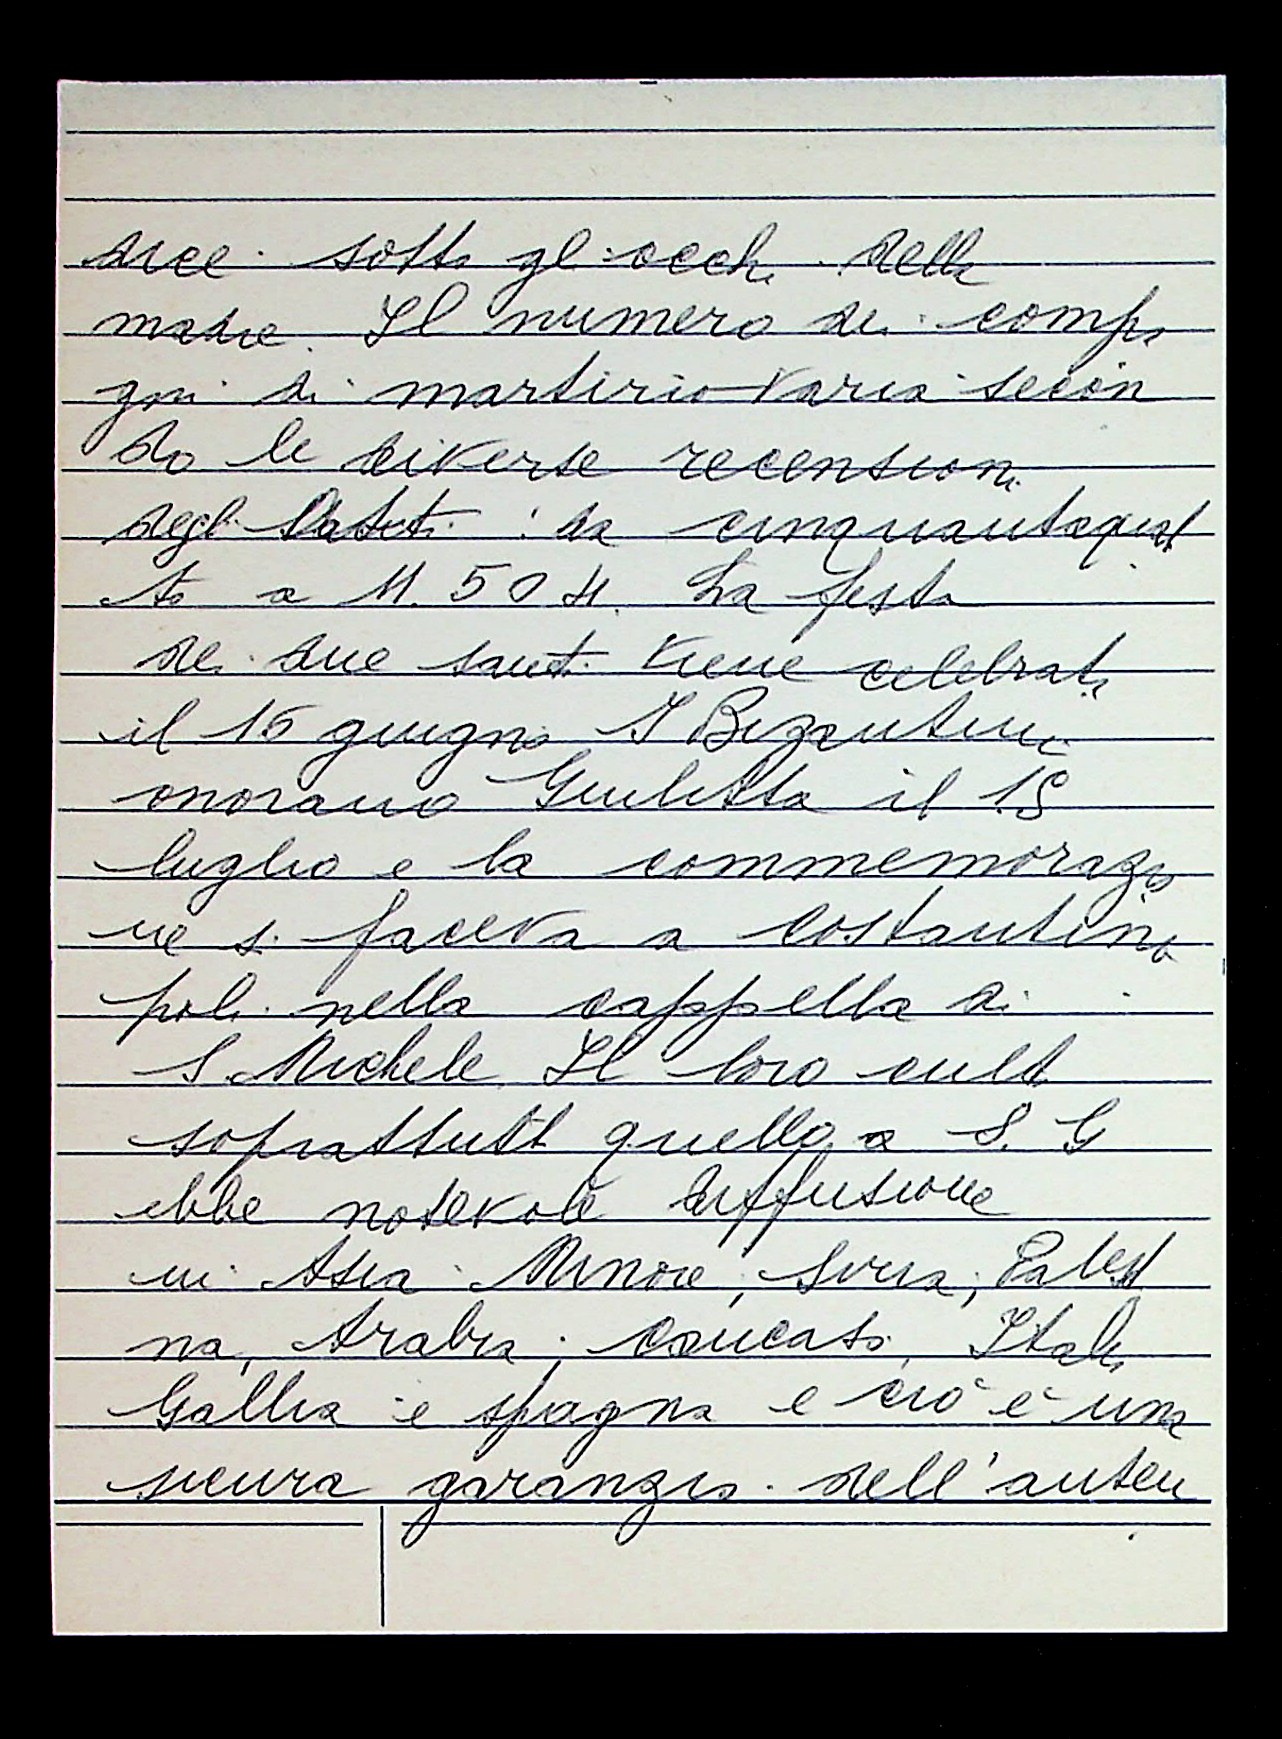 dice sotto gli occhi della
madre. Il numero dei compa
gni di martirio varia secon
do le diverse recensioni
degli : da cinquantaquat
to a 11.504. La festa
dei due santi viene celebrata
il 16 giugno. I Bizantini
onorano Giulitta il 15
luglio e la commemorazio
ne si faceva a Costantino
poli nella cappella di
S. Michele. Il loro culto
soprattutto quello a S. G
ebbe notevole diffusione
in Asia Minore, Siria, Palesti
na, Arabia, Caucaso, Italia
Gallia e Spagna e ciò è una
sicura garanzia dell'auten